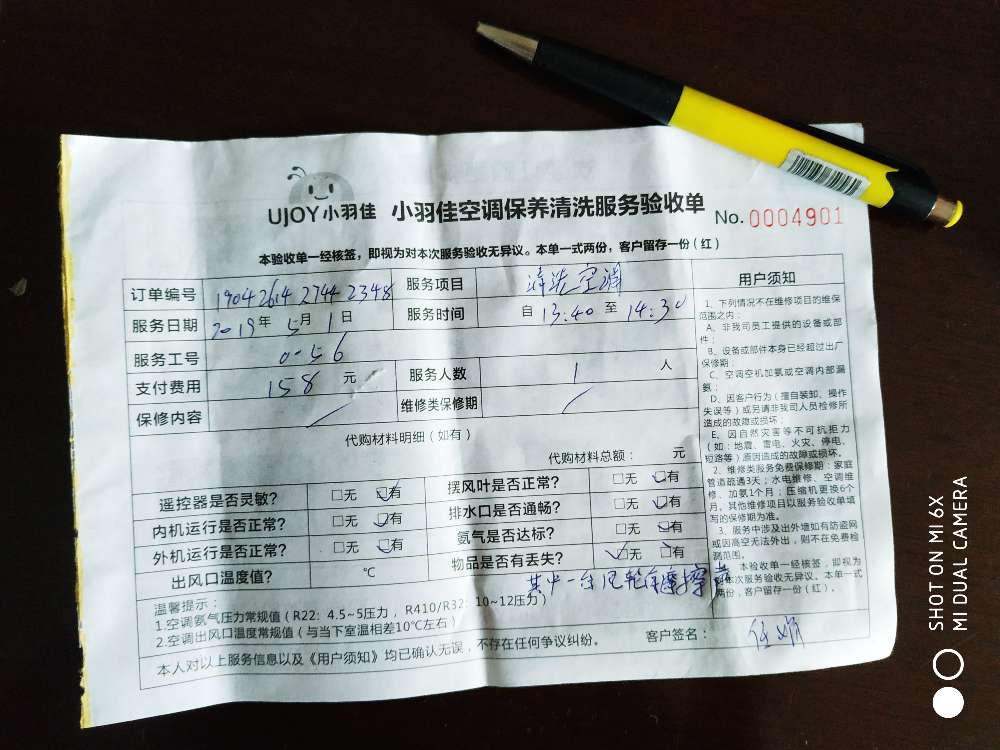 UJOY小羽佳 小羽佳空调保养清洗服务验收单 No. 0004901
本验收单一经核签，即视为对本次服务验收无异议。本单一式两份，客户留存一份（红）
订单编号 19042614 2744 2348 服务项目 清洗空调
服务日期 2019年 5月 1日 服务时间 自 13:40 至 14:30
服务工号 0-56
支付费用 158 元 服务人数 1 人
保修内容 / 维修类保修期 /
代购材料明细（如有）
代购材料总额： 元
遥控器是否灵敏？ □无 ☑有 摆风叶是否正常？ □无 ☑有
内机运行是否正常？ □无 ☑有 排水口是否通畅？ □无 ☑有
外机运行是否正常？ □无 ☑有 氨气是否达标？ □无 ☑有
出风口温度值？ ℃ 物品是否有丢失？ ☑无 □有
其中一台风轮有摩擦音
温馨提示：
1.空调氨气压力常规值（R22: 4.5~5压力，R410/R32: 10~12压力）
2.空调出风口温度常规值（与当下室温相差10℃左右）
本人对以上服务信息以及《用户须知》均已确认无误，不存在任何争议纠纷。 客户签名：
用户须知
1、下列情况不在维修项目的维保
范围之内：
A、非我司员工提供的设备或部
件；
B、设备或部件本身已经超过出厂
保修期；
C、空调空机加氨或空调内部漏
氨；
D、因客户行为（擅自装卸、操作
失误等）或另请非我司人员检修所
造成的故障或损坏；
E、因自然灾害等不可抗拒力
（如：地震、雷电、火灾、停电、
短路等）原因造成的故障或损坏。
2、维修类服务免费保修期：家庭
管道疏通3天；水电维修、空调维
修、加氨1个月；压缩机更换6个
月，其他维修项目以服务验收单填
写的保修期为准。
3、服务中涉及出外墙如有防盗网
或因高空无法外出，则不在免费检
测范围。
本验收单一经核签，即视为
本次服务验收无异议。本单一式
两份，客户留存一份（红）。
SHOT ON MI 6X
MI DUAL CAMERA